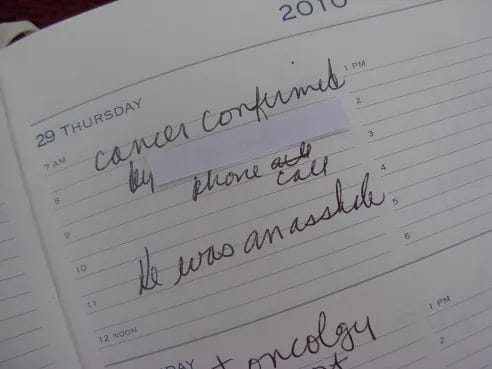 2010
29 THURSDAY
7 AM
cancer confirmed
1 PM
8
by
2
9
phone
call
3
4
10
He was an asshole
5
11
6
12 NOON
DAY
1 PM
oncolgy
2